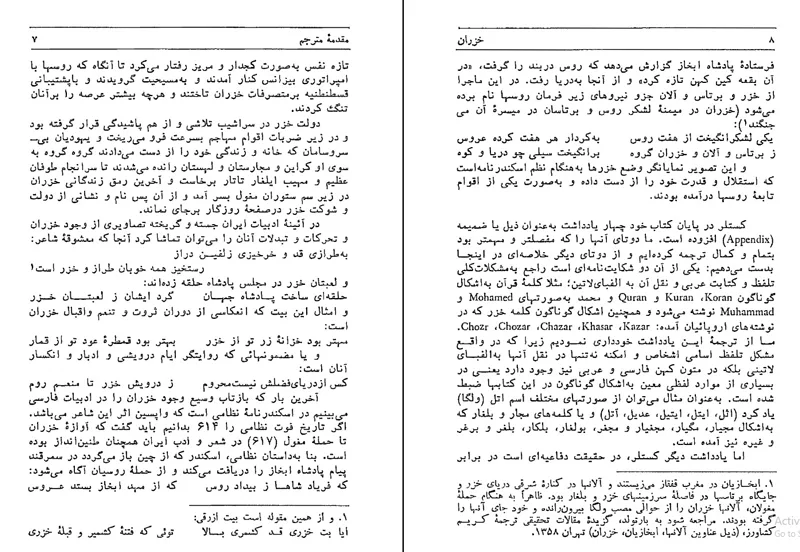 مقدمهٔ مترجم ۷
تازه نفس به‌صورت کجدار و مریز رفتار می‌کرد تا آنگاه که روسها با
امپراتوری بیزانس کنار آمدند و به‌مسیحیت گرویدند و باپشتیبانی
قسطنطنیه برمتصرفات خزران تاختند و هرچه بیشتر عرصه را برآنان
تنگ کردند.
دولت خزر در سراشیب تلاشی و از هم پاشیدگی قرار گرفته بود
و در زیر ضربات اقوام مهاجم بسرعت فرو می‌ریخت و یهودیان بی‌
سروسامان که خانه و زندگی خود را از دست می‌دادند گروه گروه به
سوی اوکراین و مجارستان و لهستان رانده می‌شدند تا سرانجام طوفان
عظیم و مهیب ایلغار تاتار برخاست و آخرین رمق زندگانی خزران
در زیر سم ستوران مغول بسر آمد و از آن پس نام و نشانی از دولت
و شوکت خزر درصفحهٔ روزگار برجای نماند.
در آئینهٔ ادبیات ایران جسته و گریخته تصاویری از وجود خزران
و تحرکات و تبدلات آنان را می‌توان تماشا کرد آنجا که معشوقهٔ شاعر:
به‌طرازی قد و خرخیزی زلفین دراز
رستخیز همه خوبان طراز و خزر است۱
و لعبتان خزر در مجلس پادشاه حلقه زده‌اند:
حلقه‌ای ساخت پادشاه جهان گرد ایشان ز لعبتان خزر
و امثال این بیت که انعکاسی از دوران ثروت و تنعم واقبال خزران
است:
بهتر بود خزانهٔ زر تو از خزر بهتر بود قمطرهٔ عود تو از قمار
و یا مضمونهائی که روایتگر ایام درویشی و ادبار و انکسار
آنان است:
کس ازدریای‌فضلش نیست‌محروم ز درویش خزر تا منعم روم
آخرین بار که بازتاب وسیع وجود خزران را در ادبیات فارسی
می‌بینیم در اسکندرنامهٔ نظامی است که واپسین اثر این شاعر می‌باشد.
اگر تاریخ فوت نظامی را ۶۱۴ بدانیم باید گفت که آوازهٔ خزران
تا حملهٔ مغول (۶۱۷) در شعر و ادب ایران همچنان طنین‌انداز بوده
است. بنا به‌داستان نظامی، اسکندر که از چین باز می‌گردد در سمرقند
پیام پادشاه ابخاز را دریافت می‌کند و از حملهٔ روسیان آگاه می‌شود:
که فریاد شاها ز بیداد روس که از مهد ابخاز بستد عروس
۱. و از همین مقوله است بیت ازرقی:
ایا بت خزری قد کسری بالا توئی که فتنهٔ کشمیر و قبلهٔ خزری
۸ خزران
فرستادهٔ پادشاه ابخاز گزارش می‌دهد که روس دربند را گرفت، «در
آن بقعه کین کهن تازه کرد» و از آنجا به‌دریا رفت. در این ماجرا
از خزر و برتاس و آلان جزو نیروهای زیر فرمان روسها نام برده
می‌شود (خزران در میمنهٔ لشکر روس و برتاسان در میسرهٔ آن می
جنگند۱):
یکی لشکرانگیخت از هفت روس به‌کردار هر هفت کرده عروس
ز برتاس و آلان و خزران گروه برانگیخت سیلی چو دریا و کوه
و این تصویر نمایانگر وضع خزرها به‌هنگام نظم اسکندرنامه‌است
که استقلال و قدرت خود را از دست داده و به‌صورت یکی از اقوام
تابعهٔ روسها درآمده بودند.
کستلر در پایان کتاب خود چهار یادداشت به‌عنوان ذیل یا ضمیمه
(Appendix) افزوده است. ما دوتای آنها را که مفصلتر و مهمتر بود
بتمام و کمال ترجمه کرده‌ایم و از دوتای دیگر خلاصه‌ای در اینجا
بدست می‌دهیم: یکی از آن دو شکایت‌نامه‌ای است راجع به‌مشکلات‌کلی
تلفظ و کتابت عربی و نقل آن به الفبای‌لاتین؛ مثلا کلمهٔ قرآن به‌اشکال
گوناگون Koran، Kuran و Quran و محمد به‌صورتهای Mohamed و
Muhammad نوشته می‌شود و همچنین اشکال گوناگون کلمه خزر که در
نوشته‌های اروپائیان آمده: Kazar، Khasar، Chazar، Chozar، Chozr.
ما از ترجمهٔ این یادداشت خودداری نمودیم زیرا که در واقع
مشکل تلفظ اسامی اشخاص و امکنه نه‌تنها در نقل آنها به‌الفبای
لاتینی بلکه در متون کهن فارسی و عربی نیز وجود دارد یعنی در
بسیاری از موارد لفظی معین به‌اشکال گوناگون در این کتابها ضبط
شده است. به‌عنوان مثال می‌توان از صورتهای مختلف اسم اتل (ولگا)
یاد کرد (اثل، ایتل، ایتیل، عدیل، آتل) و یا کلمه‌های مجار و بلغار که
به‌اشکال مجیار، مگیار، مجغیار و مجفر، بولغار، بلکار، بلغر و برغر
و غیره نیز آمده است.
اما یادداشت دیگر کستلر، در حقیقت دفاعیه‌ای است در برابر
۱. ابخازیان در مغرب قفقاز می‌زیستند و آلانها در کنارهٔ شرقی دریای خزر و
جایگاه برتاسها در فاصلهٔ سرزمینهای خزر و بلغار بود. ظاهراً به هنگام حملهٔ
مغولان، آلانها خزران را از حوالی مصب ولگا بیرون‌رانده و خود جای آنها را
گرفته بودند. مراجعه شود به بارتولد، گزیدهٔ مقالات تحقیقی ترجمهٔ کریم
کشاورز، (ذیل عناوین آلانها، ابخازیان، خزران) تهران ۱۳۵۸.
Activ
Go to S